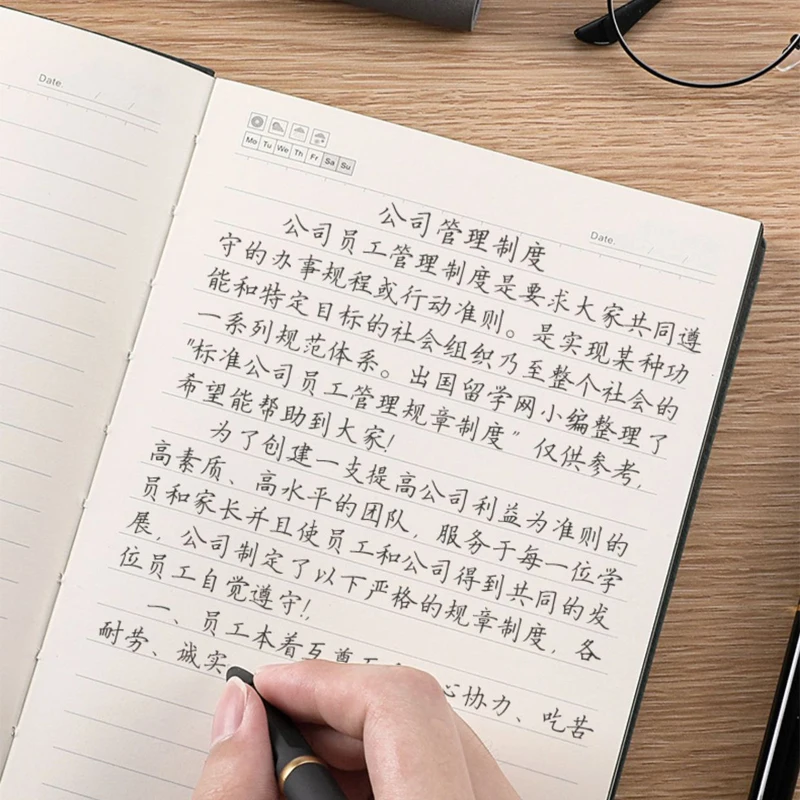 Date.
Mo Tu We Th Fr Sa Su
Date.
公司管理制度
公司员工管理制度是要求大家共同遵
守的办事规程或行动准则。是实现某种功
能和特定目标的社会组织乃至整个社会的
一系列规范体系。出国留学网小编整理了
"标准公司员工管理规章制度"仅供参考，
希望能帮助到大家!
为了创建一支提高公司利益为准则的
高素质、高水平的团队，服务于每一位学
员和家长并且使员工和公司得到共同的发
展，公司制定了以下严格的规章制度，各
位员工自觉遵守!，
一、员工本着互尊 心协力、吃苦
耐劳、诚实